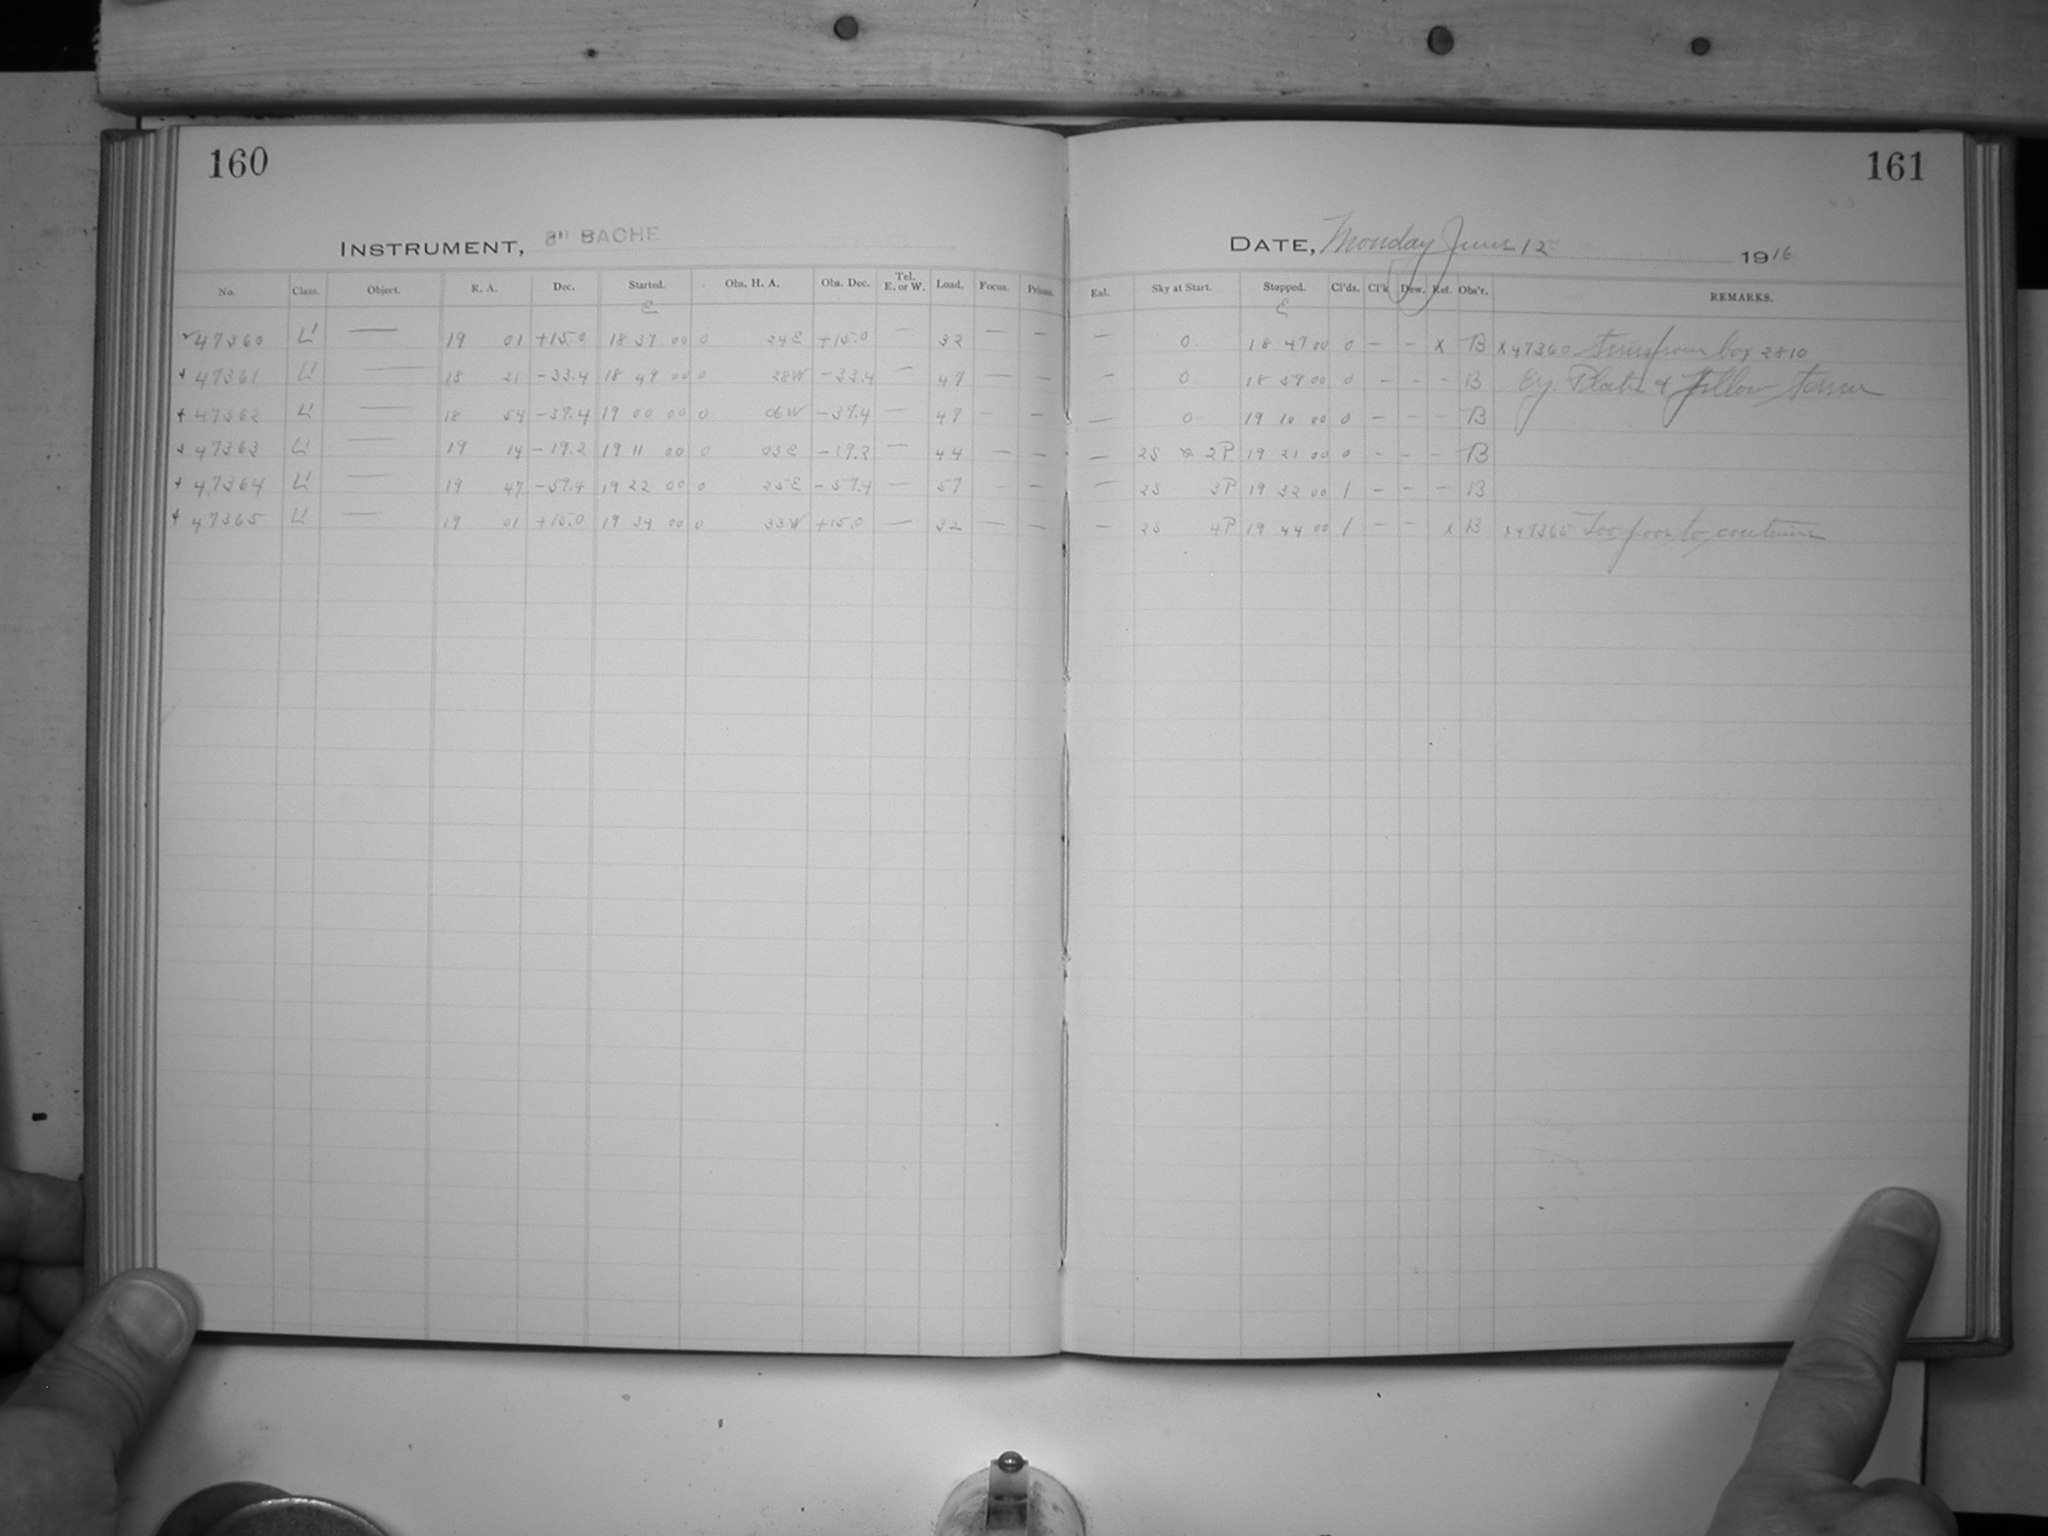 160
161
INSTRUMENT, 8" BACHE
DATE, Monday June 12 1916
No. Class. Object. R. A. Dec. Started. Obs. H. A. Obs. Dec. Tel. E. or W. Load. Focus. Prisms. Enl. Sky at Start. Stopped. Cl'ds. Cl'k Dew. Ref. Obs'r. REMARKS.
E E
47360 L' — 19 01 +15.0 18 37 00 0 24E +15.0 — 32 — — — 0 18 47 00 0 — — x B x47360 from box 2810
+ 47361 L' — 18 21 −33.4 18 49 00 0 28W −33.4 — 47 — — — 0 18 59 00 0 — — — B Ey. Plates & Yellow Screen
+ 47362 L' — 18 54 −37.4 19 00 00 0 06W −37.4 — 47 — — — 0 19 10 00 0 — — — B
+ 47363 L' — 19 14 −19.2 19 11 00 0 03E −19.2 — 44 — — — 2S & 2P 19 21 00 0 — — — B
+ 47364 L' — 19 47 −59.4 19 22 00 0 25E −59.4 — 57 — — — 2S 3P 19 32 00 1 — — — B
+ 47365 L' — 19 01 +15.0 19 34 00 0 33W +15.0 — 32 — — — 2S 4P 19 44 00 1 — — x B x47365 Too poor to continue